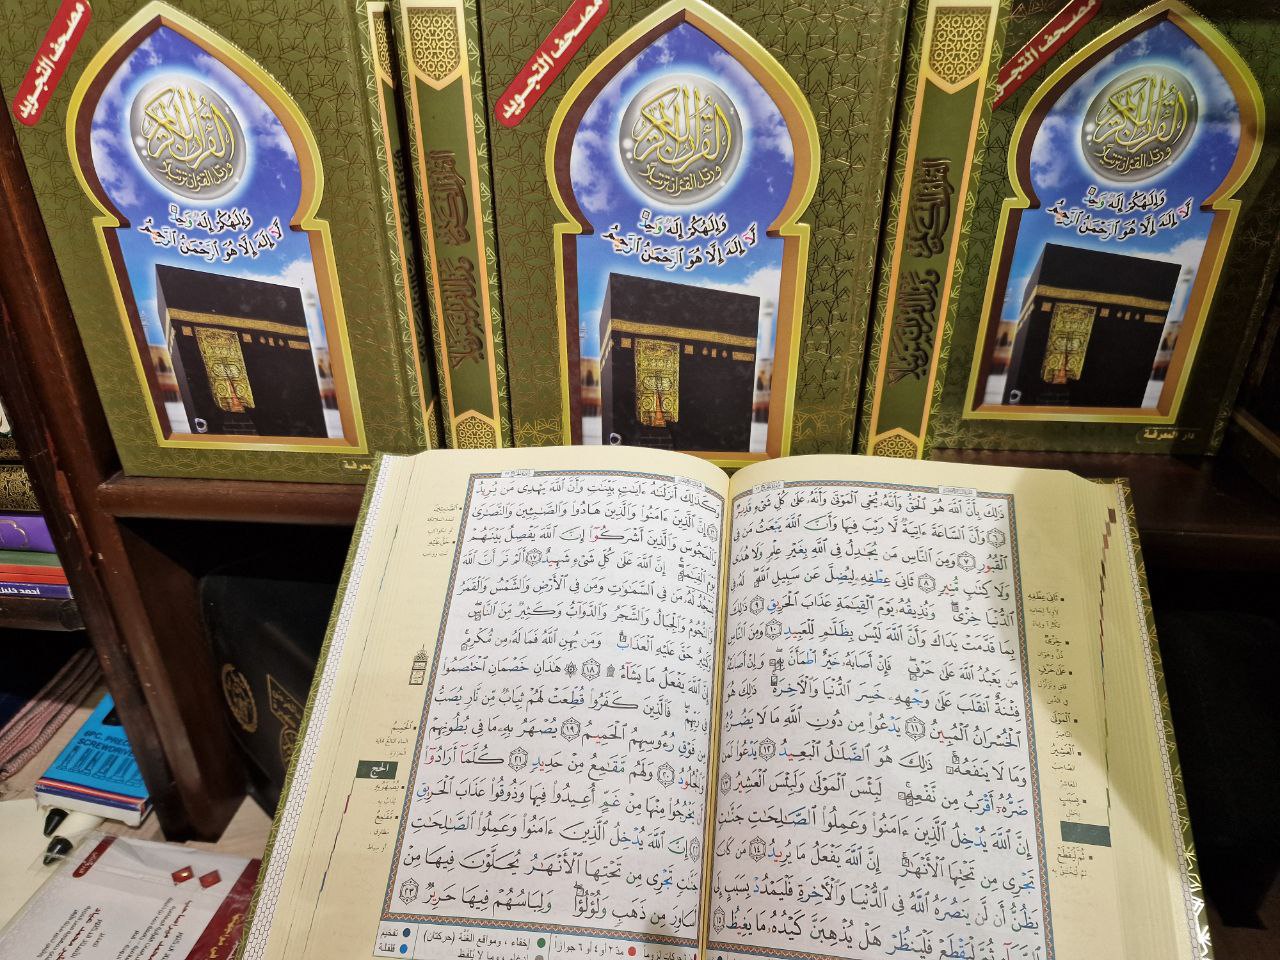 مصحف التجويد
القرآن الكريم
ورتل القرآن ترتيلا
وَإِلَٰهُكُمْ إِلَٰهٌ وَٰحِدٌ
لَّآ إِلَٰهَ إِلَّا هُوَ ٱلرَّحْمَٰنُ ٱلرَّحِيمُ
القرآن الكريم ورتل القرآن ترتيلا
مصحف التجويد
القرآن الكريم
ورتل القرآن ترتيلا
وَإِلَٰهُكُمْ إِلَٰهٌ وَٰحِدٌ
لَّآ إِلَٰهَ إِلَّا هُوَ ٱلرَّحْمَٰنُ ٱلرَّحِيمُ
القرآن الكريم ورتل القرآن ترتيلا
مصحف التجويد
القرآن الكريم
ورتل القرآن ترتيلا
وَإِلَٰهُكُمْ إِلَٰهٌ وَٰحِدٌ
لَّآ إِلَٰهَ إِلَّا هُوَ ٱلرَّحْمَٰنُ ٱلرَّحِيمُ
دار المعرفة
ذَٰلِكَ بِأَنَّ ٱللَّهَ هُوَ ٱلْحَقُّ وَأَنَّهُۥ يُحْىِ ٱلْمَوْتَىٰ وَأَنَّهُۥ عَلَىٰ كُلِّ شَىْءٍ قَدِيرٌ
۝٦ وَأَنَّ ٱلسَّاعَةَ ءَاتِيَةٌ لَّا رَيْبَ فِيهَا وَأَنَّ ٱللَّهَ يَبْعَثُ مَن فِى
ٱلْقُبُورِ ۝٧ وَمِنَ ٱلنَّاسِ مَن يُجَٰدِلُ فِى ٱللَّهِ بِغَيْرِ عِلْمٍ وَلَا هُدًى
وَلَا كِتَٰبٍ مُّنِيرٍ ۝٨ ثَانِىَ عِطْفِهِۦ لِيُضِلَّ عَن سَبِيلِ ٱللَّهِ لَهُۥ فِى
ٱلدُّنْيَا خِزْىٌ وَنُذِيقُهُۥ يَوْمَ ٱلْقِيَٰمَةِ عَذَابَ ٱلْحَرِيقِ ۝٩ ذَٰلِكَ
بِمَا قَدَّمَتْ يَدَاكَ وَأَنَّ ٱللَّهَ لَيْسَ بِظَلَّٰمٍ لِّلْعَبِيدِ ۝١٠ وَمِنَ ٱلنَّاسِ
مَن يَعْبُدُ ٱللَّهَ عَلَىٰ حَرْفٍ فَإِنْ أَصَابَهُۥ خَيْرٌ ٱطْمَأَنَّ بِهِۦ وَإِنْ أَصَابَتْهُ
فِتْنَةٌ ٱنقَلَبَ عَلَىٰ وَجْهِهِۦ خَسِرَ ٱلدُّنْيَا وَٱلْءَاخِرَةَ ذَٰلِكَ هُوَ
ٱلْخُسْرَانُ ٱلْمُبِينُ ۝١١ يَدْعُوا۟ مِن دُونِ ٱللَّهِ مَا لَا يَضُرُّهُۥ
وَمَا لَا يَنفَعُهُۥ ذَٰلِكَ هُوَ ٱلضَّلَٰلُ ٱلْبَعِيدُ ۝١٢ يَدْعُوا۟ لَمَن
ضَرُّهُۥٓ أَقْرَبُ مِن نَّفْعِهِۦ لَبِئْسَ ٱلْمَوْلَىٰ وَلَبِئْسَ ٱلْعَشِيرُ
إِنَّ ٱللَّهَ يُدْخِلُ ٱلَّذِينَ ءَامَنُوا۟ وَعَمِلُوا۟ ٱلصَّٰلِحَٰتِ جَنَّٰتٍ
تَجْرِى مِن تَحْتِهَا ٱلْأَنْهَٰرُ إِنَّ ٱللَّهَ يَفْعَلُ مَا يُرِيدُ ۝١٤ مَن كَانَ
يَظُنُّ أَن لَّن يَنصُرَهُ ٱللَّهُ فِى ٱلدُّنْيَا وَٱلْءَاخِرَةِ فَلْيَمْدُدْ بِسَبَبٍ إِلَى
ٱلسَّمَآءِ ثُمَّ لْيَقْطَعْ فَلْيَنظُرْ هَلْ يُذْهِبَنَّ كَيْدُهُۥ مَا يَغِيظُ ۝١٥
ثَانِىَ عِطْفِهِ
خِزْىٌ
عَلَىٰ حَرْفٍ
ٱلْمَوْلَىٰ
ٱلْعَشِيرُ
بِسَبَبٍ
ثُمَّ لْيَقْطَعْ
وَكَذَٰلِكَ أَنزَلْنَٰهُ ءَايَٰتٍۭ بَيِّنَٰتٍ وَأَنَّ ٱللَّهَ يَهْدِى مَن يُرِيدُ
۝١٦ إِنَّ ٱلَّذِينَ ءَامَنُوا۟ وَٱلَّذِينَ هَادُوا۟ وَٱلصَّٰبِـِٔينَ وَٱلنَّصَٰرَىٰ
وَٱلْمَجُوسَ وَٱلَّذِينَ أَشْرَكُوٓا۟ إِنَّ ٱللَّهَ يَفْصِلُ بَيْنَهُمْ
يَوْمَ ٱلْقِيَٰمَةِ إِنَّ ٱللَّهَ عَلَىٰ كُلِّ شَىْءٍ شَهِيدٌ ۝١٧ أَلَمْ تَرَ أَنَّ ٱللَّهَ
يَسْجُدُ لَهُۥ مَن فِى ٱلسَّمَٰوَٰتِ وَمَن فِى ٱلْأَرْضِ وَٱلشَّمْسُ وَٱلْقَمَرُ
وَٱلنُّجُومُ وَٱلْجِبَالُ وَٱلشَّجَرُ وَٱلدَّوَآبُّ وَكَثِيرٌ مِّنَ ٱلنَّاسِ
وَكَثِيرٌ حَقَّ عَلَيْهِ ٱلْعَذَابُ وَمَن يُهِنِ ٱللَّهُ فَمَا لَهُۥ مِن مُّكْرِمٍ
إِنَّ ٱللَّهَ يَفْعَلُ مَا يَشَآءُ ۝١٨ ۞ هَٰذَانِ خَصْمَانِ ٱخْتَصَمُوا۟
فِى رَبِّهِمْ فَٱلَّذِينَ كَفَرُوا۟ قُطِّعَتْ لَهُمْ ثِيَابٌ مِّن نَّارٍ يُصَبُّ
مِن فَوْقِ رُءُوسِهِمُ ٱلْحَمِيمُ ۝١٩ يُصْهَرُ بِهِۦ مَا فِى بُطُونِهِمْ
وَٱلْجُلُودُ ۝٢٠ وَلَهُم مَّقَٰمِعُ مِنْ حَدِيدٍ ۝٢١ كُلَّمَآ أَرَادُوٓا۟
أَن يَخْرُجُوا۟ مِنْهَا مِنْ غَمٍّ أُعِيدُوا۟ فِيهَا وَذُوقُوا۟ عَذَابَ ٱلْحَرِيقِ
۝٢٢ إِنَّ ٱللَّهَ يُدْخِلُ ٱلَّذِينَ ءَامَنُوا۟ وَعَمِلُوا۟ ٱلصَّٰلِحَٰتِ
جَنَّٰتٍ تَجْرِى مِن تَحْتِهَا ٱلْأَنْهَٰرُ يُحَلَّوْنَ فِيهَا مِنْ
أَسَاوِرَ مِن ذَهَبٍ وَلُؤْلُؤًا وَلِبَاسُهُمْ فِيهَا حَرِيرٌ ۝٢٣
ٱلْحَمِيمُ
الحج
يُصْهَرُ بِهِ
مَقَٰمِعُ
إخفاء ، ومواقع الغُنَّة (حركتان)
تفخيم
قلقلة
مدّ ٢ أو ٤ أو ٦ جوازاً
6PC. PRECISION
SCREWDRIVER
أحمد خليل